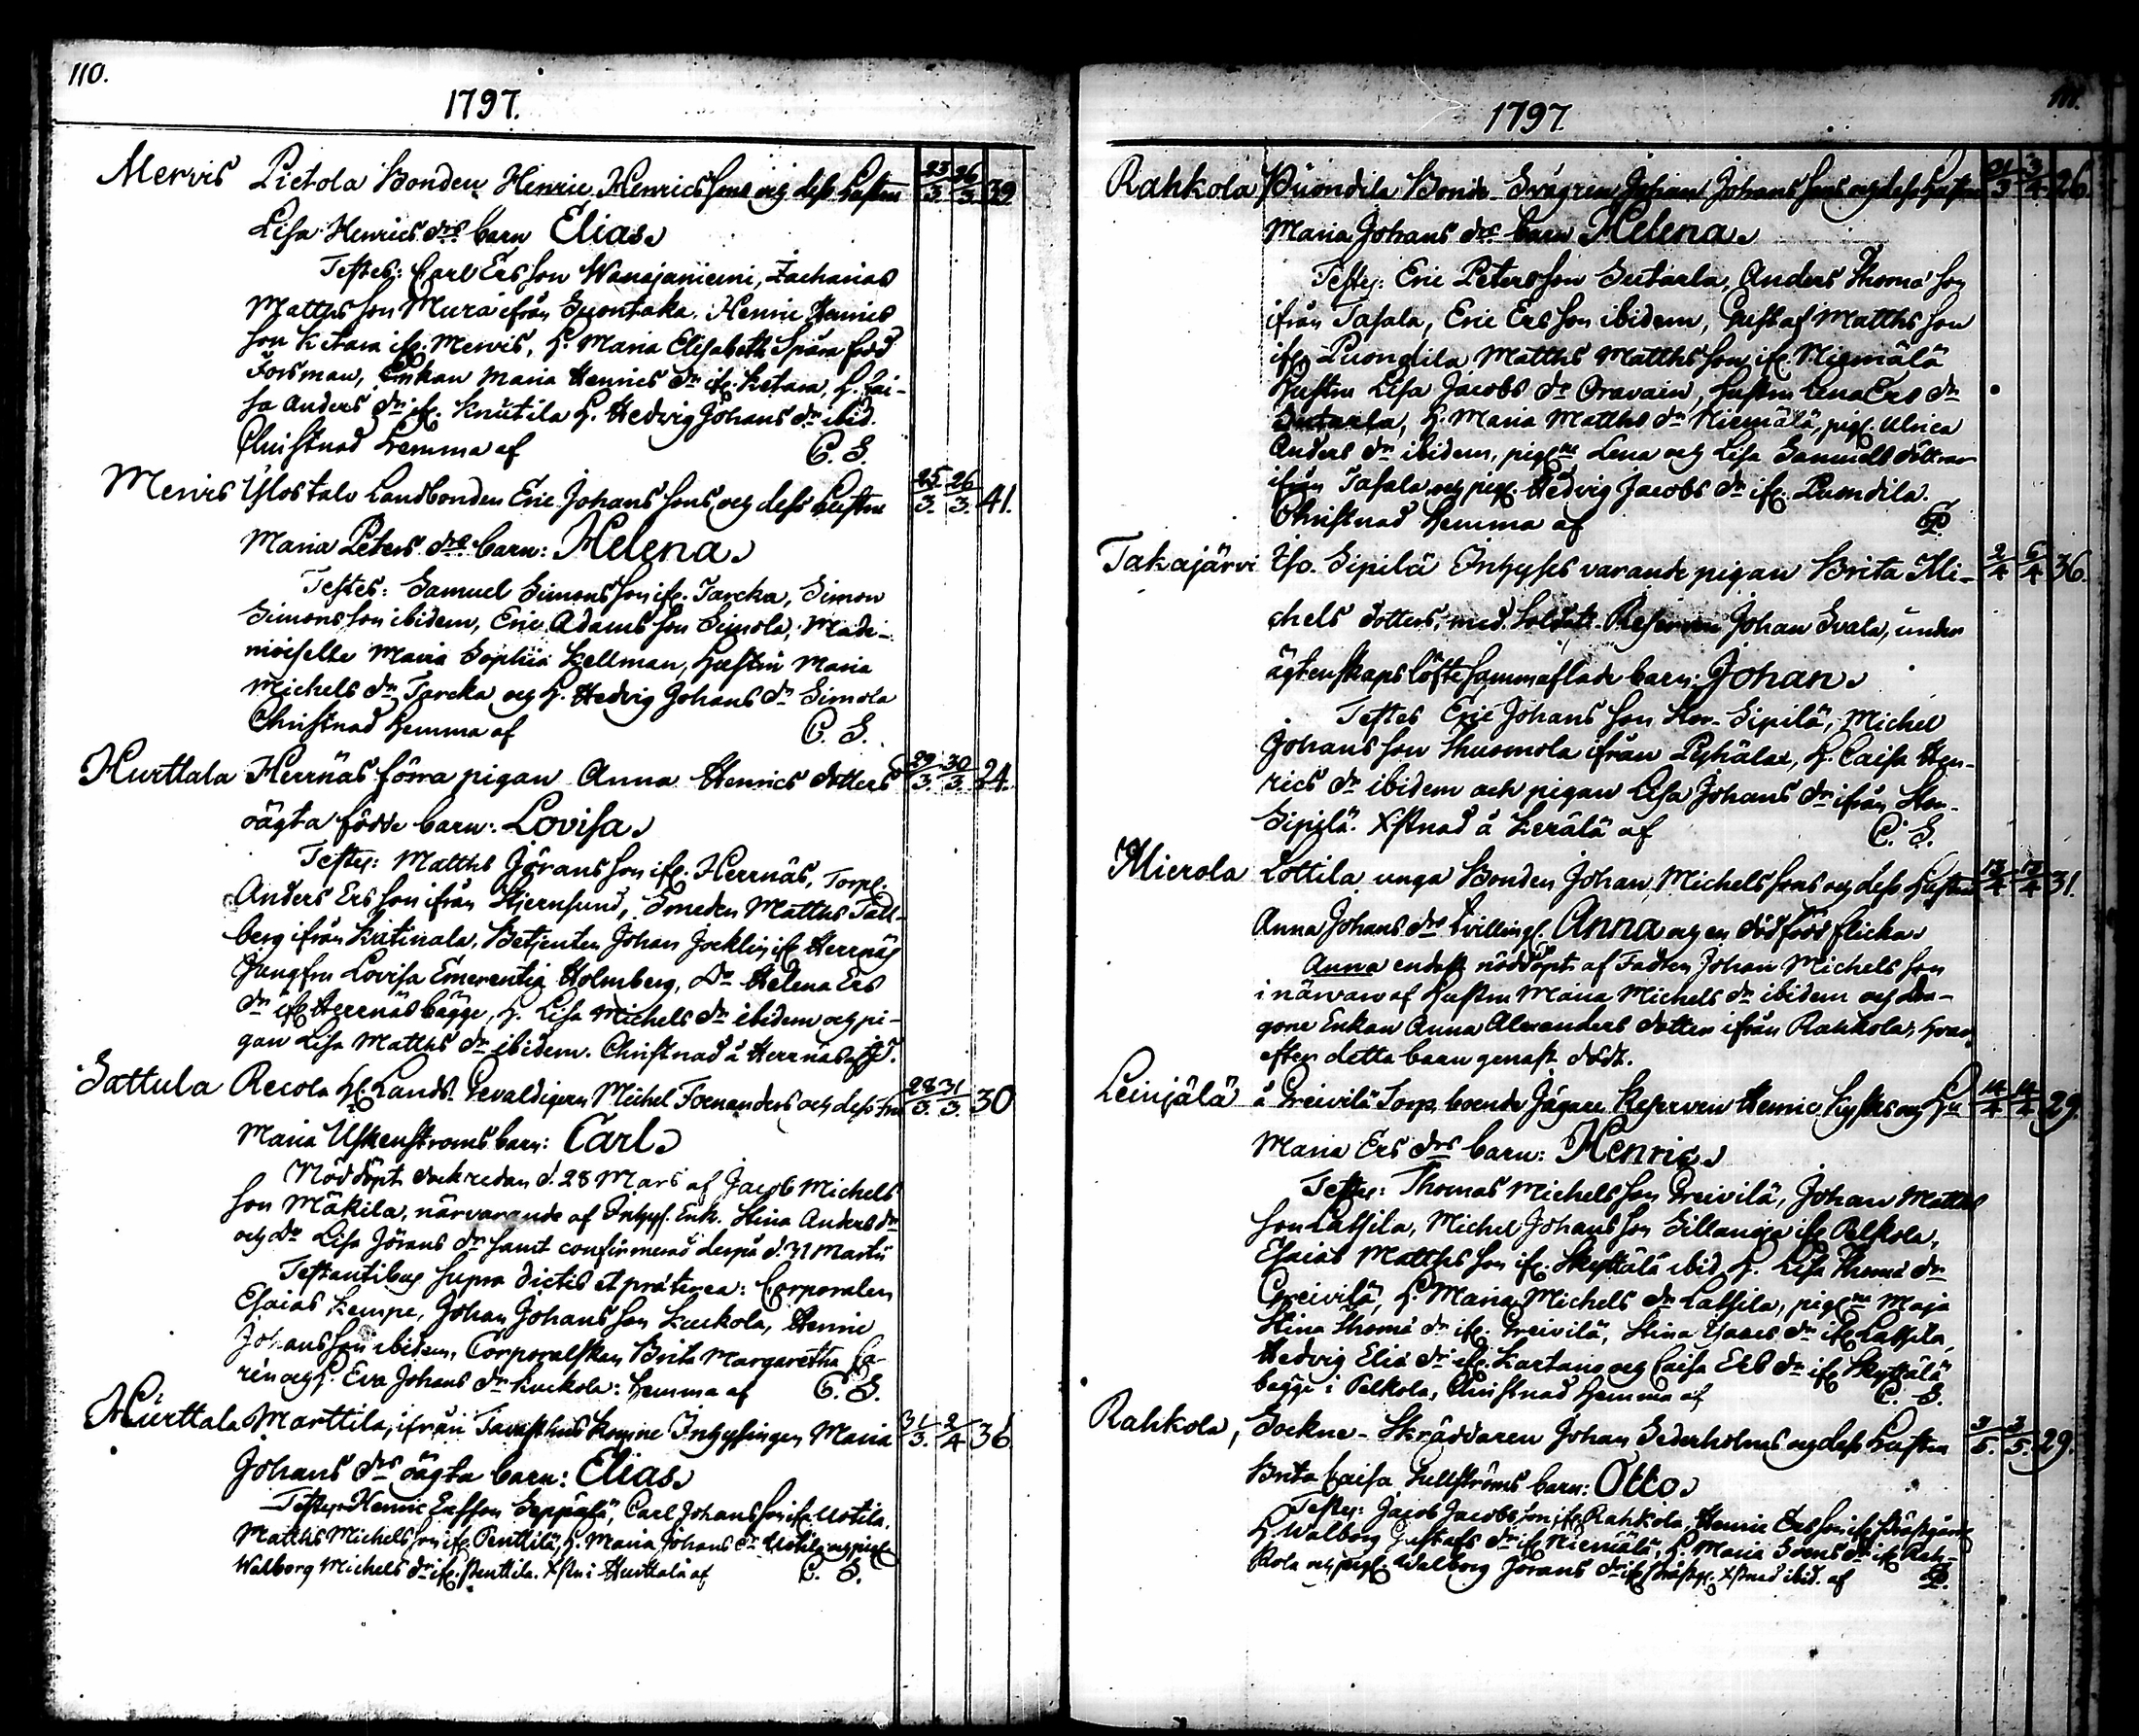 110.
1797.
Mervis Pietola Bonden Henric Henrics sons och dess hustrus 23/3. 26/3. 39
Lisa Henrics drs barn Elias.
Testes: Carl Ersson Wanajaniemi, Zacharias
Matths son Mura ifrån Suontaka. Henric Henrics
son Ketara ifr. Mervis, H. Maria Elisabeth Spåra född
Forsman, Enkan Maria Henrics dr ifr. Ketara, H. Cai-
sa Anders dr ifr. Knutila H. Hedvig Johans dr ibid.
Christnad hemma af C. S.
Mervis Ylostalo Landbonden Eric Johans sons och dess hustrus 25/3. 26/3. 41.
Maria Peters drs barn: Helena.
Testes: Samuel Simons son ifr. Jarcka, Simon
Simons son ibidem, Eric Adams son Simola, Made-
moiselle Maria Sophia Kellman, hustru Maria
Michels dr Jarcka och H. Hedvig Johans dr Simola
Christnad hemma af C. S.
Hurttala Herrnäs förra pigan Anna Henrics dotters 29/3. 30/3. 24.
oägta födde barn: Lovisa.
Testes: Matths Jörans son ifr. Herrnäs, Torp.
Anders Ers son ifrån Stjernsund, Smeden Matths Tall-
berg ifrån Katinala, Betjenten Johan Jocklin ifr. Herrnäs
Jungfru Lovisa Emerentia Holmberg, Do Helena Ers
dr ifr. Herrnäs bägge, H. Lisa Michels dr ibidem och pi-
gan Lisa Matths dr ibidem. Christnad å Herrnäs af
Sattula Recola Lands Gevaldigern Michel Foenanders och dess fru 28/3. 31/3. 30
Maria Uskenstroms barn: Carl.
Nöddöpt dock redan d. 28 Mars af Jacob Michels
son Mäkila, närvarande af Inhys. Enk. Stina Anders dr
och Do Lisa Jörans dr samt confirmerad derpå d. 31 Martii
Testantibus supra dictis et præterea: Corporalen
Esaias Kempe, Johan Johans son Kuckola, Henric
Johans son ibidem, Corporalskan Brita Margaretha Ca-
rén och H. Eva Johans dr Kuckola: hemma af C. S.
Hurttala Marttila, ifrån Tavasthus komne Inhysingen Maria 31/3. 2/4 36
Johans drs oägta barn: Elias.
Testes: Henric Ersson Seppälä, Carl Johans son ifr. Uotila.
Matths Michels son ifr. Penttilä, H. Maria Johans dr Uotila och pig.
Walborg Michels dr ifr. Penttila. Xstn i Hurttala af C. S.
111.
1797.
Rahkola Puondila Bonde-Svågren Johan Johans sons och dess hustrus 31/3 3/4 26.
Maria Johans drs barn Helena.
Testes: Eric Peters son Sutarla, Anders Thomæ son
ifrån Tasala, Eric Ers son ibidem, Gustaf Matths son
ifr. Puondila Matths Matths son ifr. Niemälä
Hustru Lisa Jacobs dr Oravain, hustru Lena Ers dr
Sutarla, H. Maria Matths dr Niemälä, pig. Ulrica
Anders dr ibidem, pigne Lena och Lisa Samuels döttrar
ifrån Tasala och pig. Hedvig Jacobs dr ifr. Puondila.
Christnad hemma af
Takajärvi Iso-Sipilä Inhyses varande pigan Brita Mi- 2/4 6/4 36.
chels dotters, med Soldats Reserven Johan Svala, under
ägtenskaps löfte sammaflade barn: Johan.
Testes Eric Johans son Stor-Sipilä, Michel
Johans son Thuomola ifrån Pyhälax, H. Caisa Hen-
rics dr ibidem och pigan Lisa Johans dr ifrån Stor-
Sipilä. Xstnad å Kerälä af C. S.
Mierola Lottila unga Bonden Johan Michels sons och dess hustrus 13/4 13/4 31.
Anna Johans drs tvilling. Anna och en dödfödd flicka.
Anna endast nöddöpt af Fadren Johan Michels son
i närvaro af hustru Maria Michels dr ibidem och Dra-
gone Enkan Anna Alexanders dotter ifrån Rahkola, hvar-
efter detta barn genast dödt.
Leinjälä å Greivilä Torp boende Jägare Reserven Henric Kyhs och Hu 14/4 14/4 29.
Maria Ers drs barn: Henric.
Testes: Thomas Michels son Greivilä, Johan Matths
son Lassila, Michel Johans son Sillanpä ifr. Pelkola,
Esaias Matths son ifr. Skyttälä ibid. H. Lisa Thomæ dr
Greivilä, H. Maria Michels dr Lassila, pigne Maja
Stina Thomæ dr ifr. Greivilä, Stina Isaacs dr ifr. Lassila,
Hedvig Eliæ dr ifr. Kartano och Caisa Ers dr ifr. Skyttälä
bägge i Pelkola, Christnad hemma af C. S.
Rahkola, Sockne-Skräddaren Johan Sederholms och dess hustrus 3/5. 3/5. 29.
Brita Caisa Hellströms barn: Otto.
Testes: Jacob Jacobs son ifr. Rahkola, Henric Ers son ifr. Prästgård
H. Walborg Gustafs dr ifr. Niemälä, H. Maria Svens dr ifr. Rah-
kola och pig. Walborg Jörans dr ifr. Prästg. Xstnad ibid. af